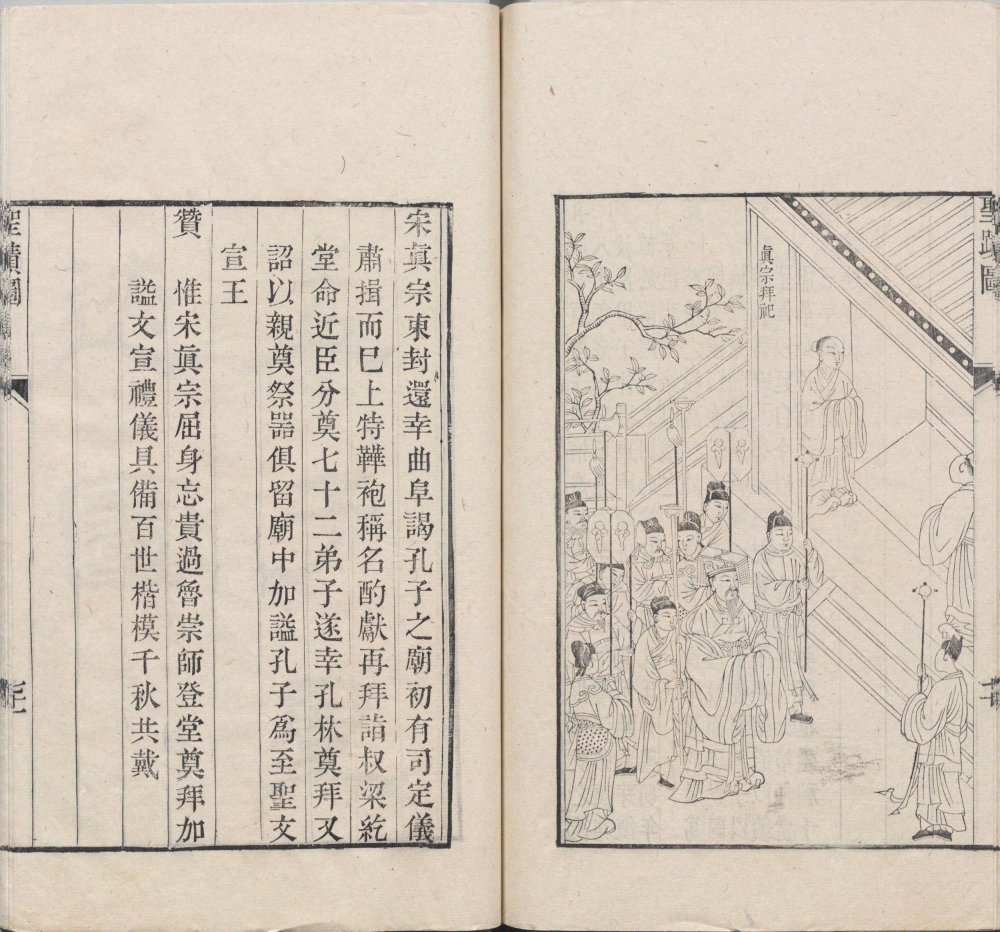 聖蹟圖
真宗拜祀
宋真宗東封還幸曲阜謁孔子之廟初有司定儀
肅揖而已上特鞾袍稱名酌獻再拜詣叔梁紇
堂命近臣分奠七十二弟子遂幸孔林奠拜又
詔以親奠祭器俱留廟中加謚孔子爲至聖文
宣王
贊
惟宋真宗屈身忘貴過魯崇師登堂奠拜加
謚文宣禮儀具備百世楷模千秋共戴
聖蹟圖